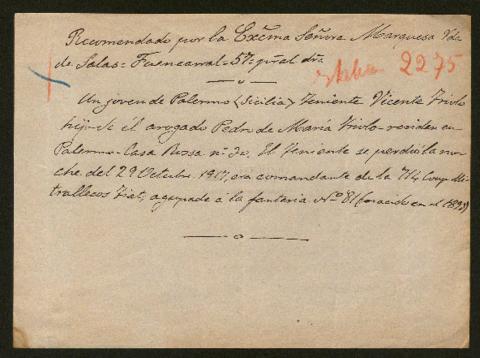 Recomendado por la Excma Señora Marquesa Vda
de Salas = Fuencarral - 57: pral dra
Italia 2275
Un joven de Palermo (Sicilia) Teniente Vicente Friolo
hijo de él avogado Pedro de María Friolo - residen en
Palermo - Casa Russa nº 30. El teniente se perdió la no-
che del 29 Octubre 1917, era comandante de la 714 Comp Mi-
trallecos Fiat, agregado á la fanteria Nº 81 (nacido en el 1892)